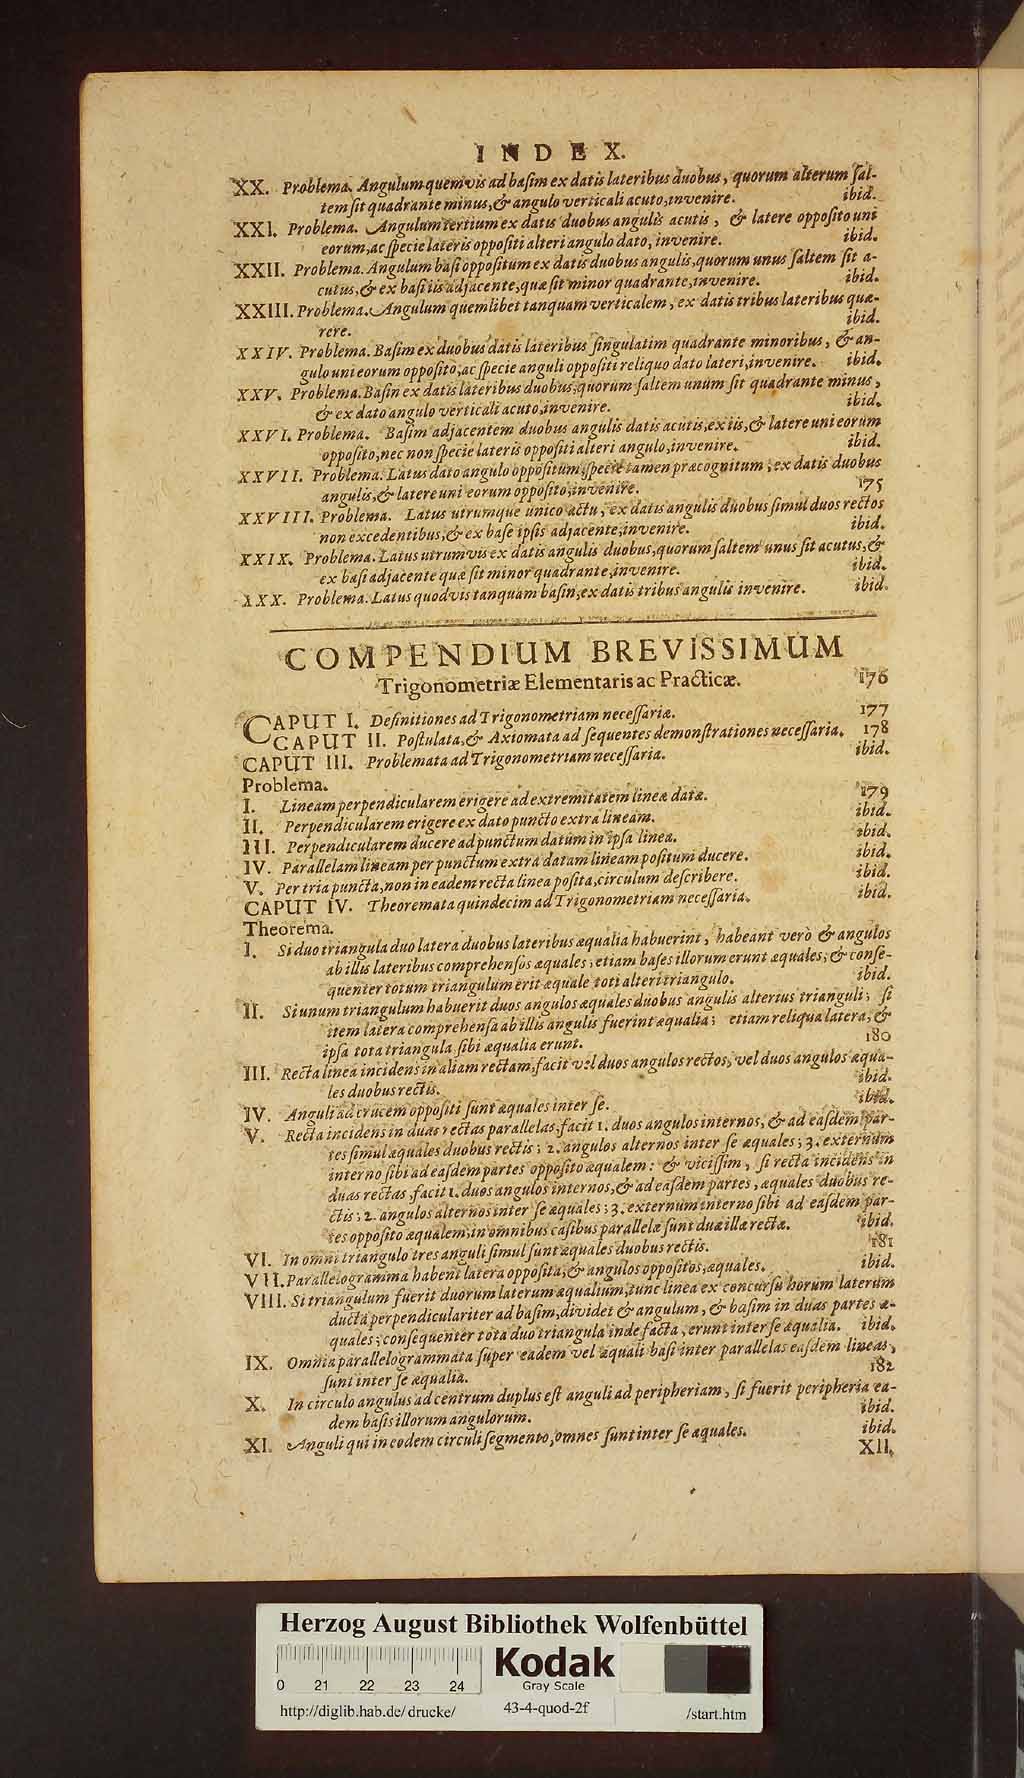 INDEX.
XX. Problema. Angulum quemvis ad baſim ex datis lateribus duobus, quorum alterum ſal-
tem ſit quadrante minus, & angulo verticali acuto, invenire. ibid.
XXI. Problema. Angulum tertium ex datis duobus angulis acutis, & latere oppoſito uni
eorum, ac ſpecie lateris oppoſiti alteri angulo dato, invenire. ibid.
XXII. Problema. Angulum baſi oppoſitum ex datis duobus angulis, quorum unus ſaltem ſit a-
cutus, & ex baſi iis adjacente, quæ ſit minor quadrante, invenire. ibid.
XXIII. Problema. Angulum quemlibet tanquam verticalem, ex datis tribus lateribus quæ-
rere. ibid.
XXIV. Problema. Baſim ex duobus datis lateribus ſingulatim quadrante minoribus, & an-
gulo uni eorum oppoſito, ac ſpecie anguli oppoſiti reliquo dato lateri, invenire. ibid.
XXV. Problema. Baſin ex datis lateribus duobus, quorum ſaltem unum ſit quadrante minus,
& ex dato angulo verticali acuto, invenire. ibid.
XXVI. Problema. Baſim adjacentem duobus angulis datis acutis, ex iis, & latere uni eorum
oppoſito, nec non ſpecie lateris oppoſiti alteri angulo, invenire. ibid.
XXVII. Problema. Latus dato angulo oppoſitum, ſpecie tamen præcognitum, ex datis duobus
angulis, & latere uni eorum oppoſito, invenire. 175
XXVIII. Problema. Latus utrumque unico actu, ex datis angulis duobus ſimul duos rectos
non excedentibus, & ex baſe ipſis adjacente, invenire. ibid.
XXIX. Problema. Latus utrumvis ex datis angulis duobus, quorum ſaltem unus ſit acutus, &
ex baſi adjacente quæ ſit minor quadrante, invenire. ibid.
XXX. Problema. Latus quodvis tanquam baſin, ex datis tribus angulis invenire. ibid.
COMPENDIUM BREVISSIMUM
Trigonometriæ Elementaris ac Practicæ. 176
CAPUT I. Definitiones ad Trigonometriam neceſſariæ. 177
CAPUT II. Poſtulata, & Axiomata ad ſequentes demonſtrationes neceſſaria. 178
CAPUT III. Problemata ad Trigonometriam neceſſaria. ibid.
Problema.
I. Lineam perpendicularem erigere ad extremitatem lineæ datæ. 179
II. Perpendicularem erigere ex dato puncto extra lineam. ibid.
III. Perpendicularem ducere ad punctum datum in ipſa linea. ibid.
IV. Parallelam lineam per punctum extra datam lineam poſitum ducere. ibid.
V. Per tria puncta, non in eadem recta linea poſita, circulum deſcribere. ibid.
CAPUT IV. Theoremata quindecim ad Trigonometriam neceſſaria. ibid.
Theorema.
I. Si duo triangula duo latera duobus lateribus æqualia habuerint, habeant verò & angulos
ab illis lateribus comprehenſos æquales; etiam baſes illorum erunt æquales; & conſe-
quenter totum triangulum erit æquale toti alteri triangulo. ibid.
II. Si unum triangulum habuerit duos angulos æquales duobus angulis alterius trianguli; ſi
item latera comprehenſa ab illis angulis fuerint æqualia; etiam reliqua latera, &
ipſa tota triangula ſibi æqualia erunt. 180
III. Recta linea incidens in aliam rectam, facit vel duos angulos rectos, vel duos angulos æqua-
les duobus rectis. ibid.
IV. Anguli ad crucem oppoſiti ſunt æquales inter ſe. ibid.
V. Recta incidens in duas rectas parallelas, facit 1. duos angulos internos, & ad eaſdem par-
tes ſimul æquales duobus rectis; 2. angulos alternos inter ſe æquales; 3. externum
interno ſibi ad eaſdem partes oppoſito æqualem: & viciſſim, ſi recta incidens in
duas rectas, facit 1. duos angulos internos, & ad eaſdem partes, æquales duobus re-
ctis; 2. angulos alternos inter ſe æquales; 3. externum interno ſibi ad eaſdem par-
tes oppoſito æqualem; in omnibus caſibus parallelæ ſunt duæ illæ rectæ. ibid.
VI. In omni triangulo tres anguli ſimul ſunt æquales duobus rectis. 181
VII. Parallelogramma habent latera oppoſita, & angulos oppoſitos, æquales. ibid.
VIII. Si triangulum fuerit duorum laterum æqualium, tunc linea ex concurſu horum laterum
ducta perpendiculariter ad baſim, dividet & angulum, & baſim in duas partes æ-
quales; conſequenter tota duo triangula inde facta, erunt inter ſe æqualia. ibid.
IX. Omnia parallelogrammata ſuper eadem vel æquali baſi inter parallelas eaſdem lineas,
ſunt inter ſe æqualia. 182
X. In circulo angulus ad centrum duplus eſt anguli ad peripheriam, ſi fuerit peripheria ea-
dem baſis illorum angulorum. ibid.
XI. Anguli qui in eodem circuli ſegmento, omnes ſunt inter ſe æquales. ibid.
XII.
Herzog August Bibliothek Wolfenbüttel
Kodak
Gray Scale
0 21 22 23 24
http://diglib.hab.de/drucke/ 43-4-quod-2f /start.htm